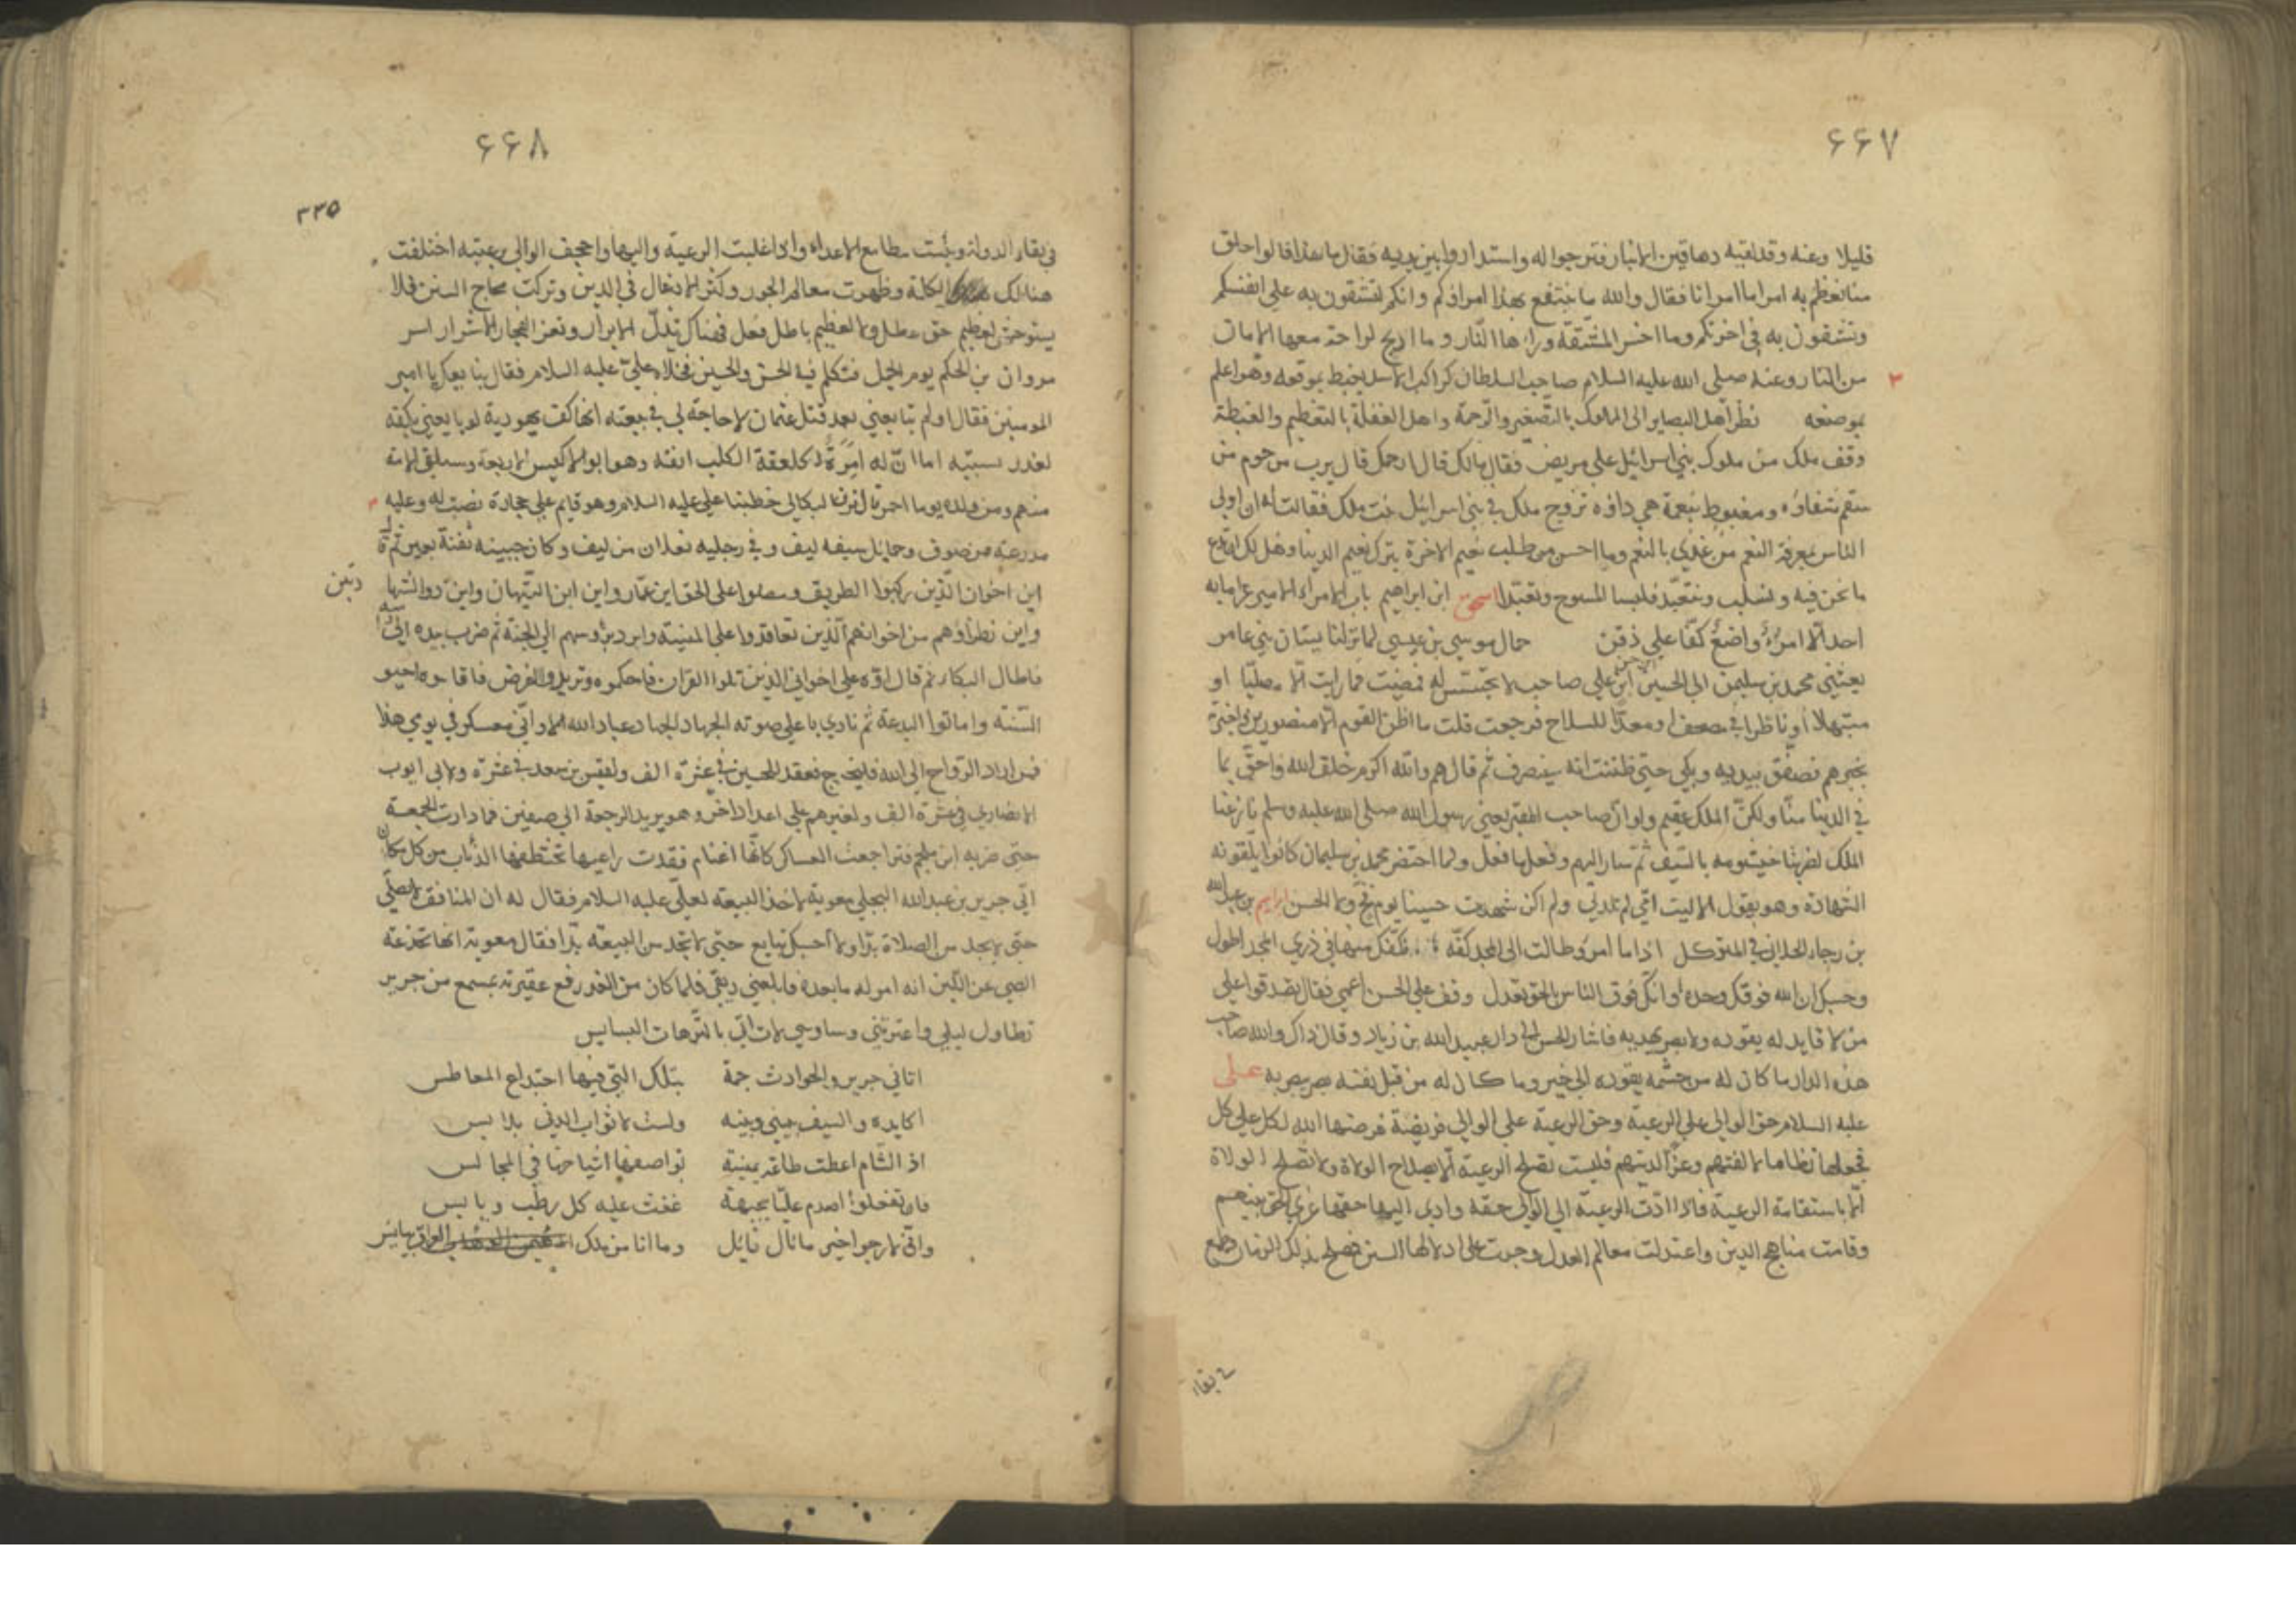 ۶۶۷
قليلا وعنه وقد لقيه دهاقين الانبار فترجوا له واستدار وا بين يديه فقال ما هذا قالوا خلق
منا نعظم به امراءنا فقال والله ما ينتفع بهذا امراؤكم وانكم لتشقون به على انفسكم
وتشقون به في اخرتكم وما اخسر المشقة وراءها النار وما اربح الراحة معها الامان
من النار وعنه صلى الله عليه السلام صاحب السلطان كراكب الاسد يغبط بموقعه وهو اعلم
بموضعه نظر اهل البصاير الى الملوك بالتصغير والرحمة واهل الغفلة بالتعظيم والغبطة
وقف ملك من ملوك بني اسرائيل على مريض فقال مالك قال ارحمك قال يرب مرحوم من
سقم شفاؤه ومغبوط بنعمة هي داؤه تزوج ملك في بني اسرائيل بنت ملك فقالت له ان اولى
الناس بمعرفة النعم من غذي بالنعم وما احسن من طلب نعيم الاخرة بترك نعيم الدنيا وهل لك ان تدع
ما نحن فيه و نتعبد فلبسا المسوح وتعبدا اسحق ابن ابراهيم باب الامراء الامير عرامابه
احد الا امرؤ واضع كفا على ذقن حمال موسى بن عيسى لما نزلنا بستان بني عامر
بعثني محمد بن سليمن الى الحسين ابن علي صاحب لا تجسس له فمضيت فما رايت الا مصليا او
مبتهلا او ناظرا في مصحف او معدا للسلاح فرجعت قلت ما اظن القوم الا منصورين واخبرته
بخبرهم فصفق بيديه وبكى حتى ظننت انه سينصرف ثم قال هم والله اكرم خلق الله واحق بما
في الدينا منا ولكن الملك عقيم ولو ان صاحب القبر يعني رسول الله صلى الله عليه وسلم نازعنا
الملك لضربنا خيشومه بالسيف ثم سار اليهم وفعل ما فعل ولما احتضر محمد بن سليمان كانوا يلقونه
الشهادة وهو يقول الا ليت امي لم تلدني ولم اكن شهدت حسينا يوم فخ ولا الحسن ابراهيم بن عبد الله
بن رجاء في المتوكل اذا ما امرؤ طالت الى المجد كفه فكفك منها في ذرى المجد اطول
وحسبك ان الله فوقك وحده وانك فوق الناس بالحق تعدل وقف على الحسن اعمى فقال تصدقوا على
من لا قايد له يقوده ولا بصر يهديه فاشار الحسن الى دار عبيد الله بن زياد وقال ذاك والله صاحب
هذه الدار ما كان له من حشمه يقوده الى خير وما كان له من قبل نفسه بصر يبصر به على
عليه السلام حق الوالي على الرعية وحق الرعية على الوالي فريضة فرضها الله لكل على كل
فجعلها نظاما لالفتهم وعزا لدينهم فليست تصلح الرعية الا بصلاح الولاة ولا تصلح الولاة
الا باستقامة الرعية فاذا ادت الرعية الى الوالي حقه وادى اليها حقها عز الحق بينهم
وقامت مناهج الدين واعتدلت معالم العدل وجرت على اذلالها السنن فصلح بذلك الزمان وطمع
في بقاء
۶۶۸
۳۳۵
في بقاء الدولة ويئست مطامع الاعداء واذا غلبت الرعية واليها واجحف الوالي برعيته اختلفت
هنالك الكلمة وظهرت معالم الجور وكثر الادغال في الدين وتركت محاج السنن فلا
يستوحش لعظيم حق عطل ولا لعظيم باطل فعل فهناك تذل الابرار وتعز الفجار الاشرار اسر
مروان بن الحكم يوم الجمل فتكلم فيه الحسن والحسين فخلاه علي عليه السلام فقال يبايعك يا امير
المومنين فقال اولم يبايعني بعد قتل عثمان لا حاجة لي في بيعته انها كف يهودية لو بايعني بكفه
لغدر بسبته اما ان له امرة كلعقة الكلب انفه وهو ابو الاكبش الاربعة وستلقى الامة
منهم ومن ولده يوما احمر قال نوف البكالي خطبنا علي عليه السلام وهو قايم على حجارة نصبت له وعليه
مدرعة من صوف وحمايل سيفه ليف وفي رجليه نعلان من ليف وكان جبينه ثفنة بعير ثم قال
اين اخوان الذين ركبوا الطريق ومضوا على الحق اين عمار واين ابن التيهان واين ذو الشهادتين
واين نظراؤهم من اخوانهم الذين تعاقدوا على المنية وابرد برؤسهم الى الجنة ثم ضرب بيده الى لحيته
فاطال البكاء ثم قال اوه على اخواني الذين تلوا القران فاحكموه وتدبروا الفرض فاقاموه احيو
السنة واماتوا البدعة ثم نادى باعلى صوته الجهاد الجهاد عباد الله الا واني معسكر في يومي هذا
فمن اراد الرواح الى الله فليخرج فعقد للحسين في عشرة الف ولقيس بن سعد في عشرة ولابي ايوب
الانصاري في عشرة الف ولغيرهم على اعداد اخر وهو يريد الرجعة الى صفين فما دارت الجمعة
حتى ضربه ابن ملجم فتراجعت العساكر كانها اغنام فقدت راعيها تختطفها الذئاب من كل مكان
اتى جرير بن عبد الله البجلي معوية لاخذ البيعة لعلي عليه السلام فقال له ان المنافق لا يصلي
حتى لا يجد من الصلاة بدا ولا احسبك تبايع حتى لا تجد من البيعة بدا فقال معوية انها ليست بخدعة
الصبي عن اللبن انه امر له ما بعده فابلعني ريقي فلما كان من الغد رفع عقيرته بمسمع من جرير
تطاول ليلي واعترتني وساوسي لات اتى بالترهات البسابس
اتاني جرير والحوادث جمة بتلك التي فيها اجتداع المعاطس
اكايده والسيف بيني وبينه ولست لاثواب الدني بلابس
اذ الشام اعطت طاعة يمنية تواصفها اشياخها في المجالس
فان تفعلوا اصدم عليا بجبهة عفت عليه كل رطب ويابس
واني لارجوا خير ما نال نايل وما انا من ملك العراق بيائس